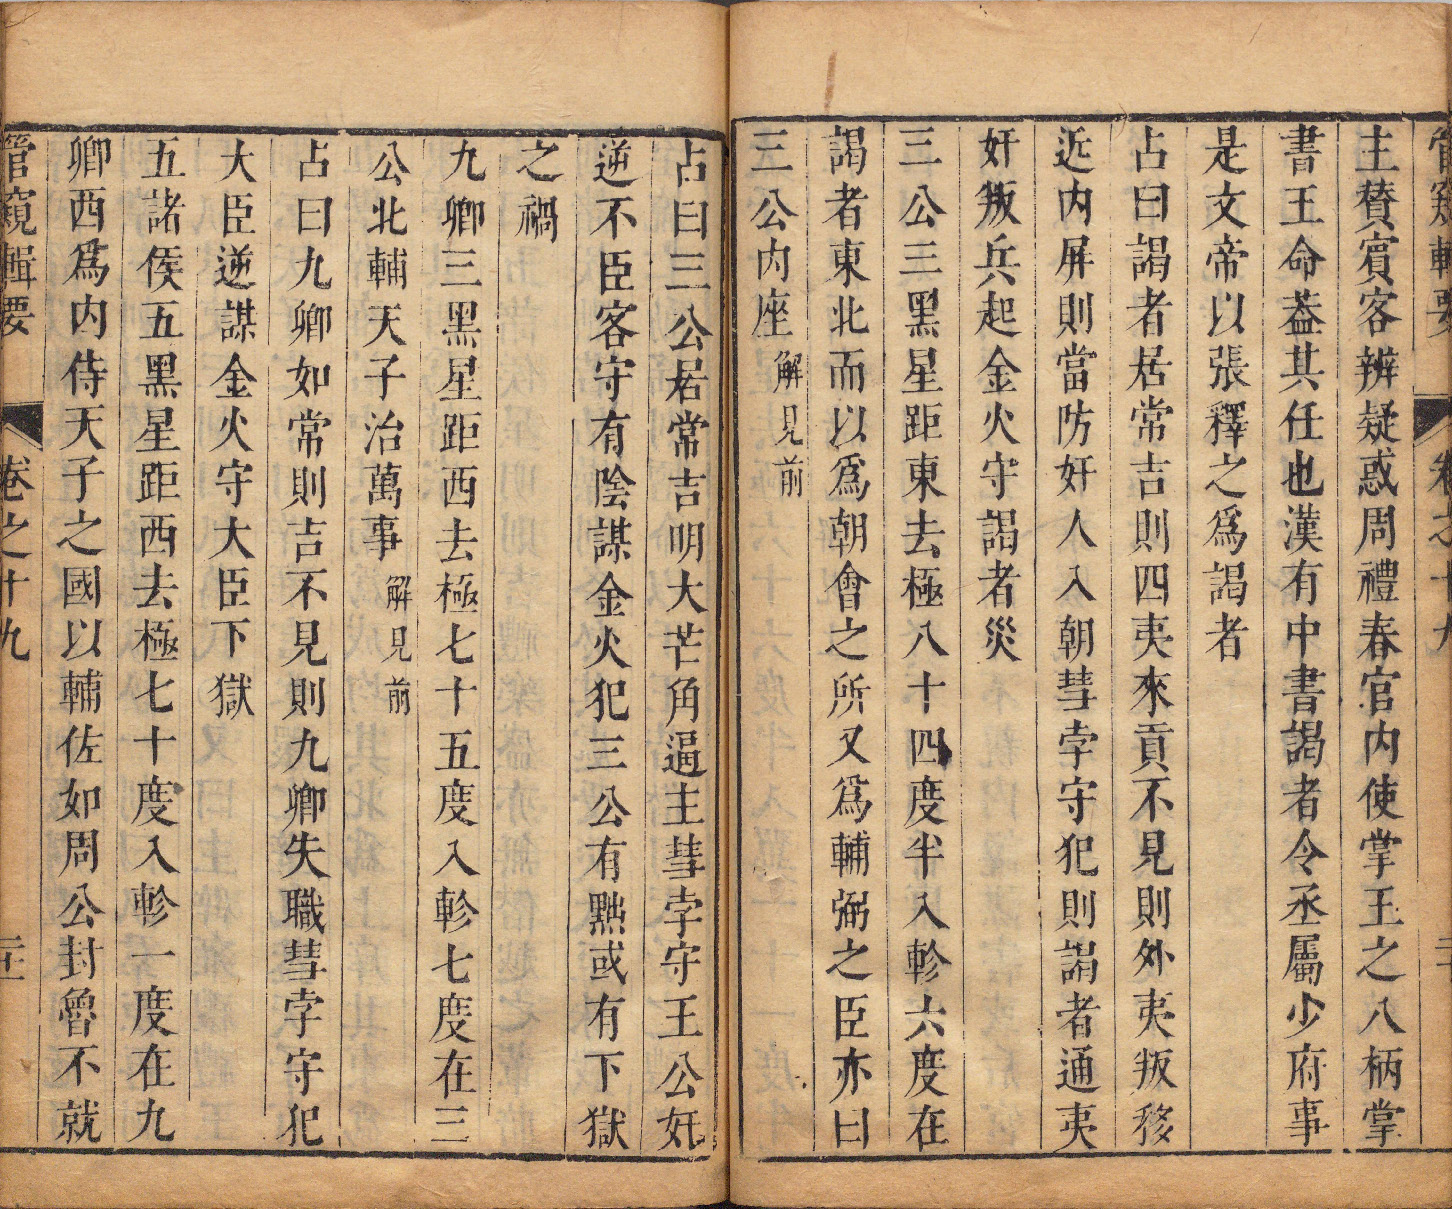 管窺輯要 卷之十九 二十
主賛賔客辨疑惑周禮春官内使掌王之八柄掌
書王命葢其任也漢有中書謁者令丞屬少府事
是文帝以張釋之爲謁者
占曰謁者居常吉則四夷來貢不見則外夷叛移
近内屏則當防奸人入朝彗孛守犯則謁者通夷
奸叛兵起金火守謁者災
三公三黑星距東去極八十四度半入軫六度在
謁者東北而以爲朝會之所又爲輔弼之臣亦曰
三公内座解見前
占曰三公居常吉明大芒角逼主彗孛守王公奸
逆不臣客守有陰謀金火犯三公有黜或有下獄
之禍
九卿三黑星距西去極七十五度入軫七度在三
公北輔天子治萬事解見前
占曰九卿如常則吉不見則九卿失職彗孛守犯
大臣逆謀金火守大臣下獄
五諸侯五黑星距西去極七十度入軫一度在九
卿西爲内侍天子之國以輔佐如周公封魯不就
管窺輯要 卷之十九 二十一